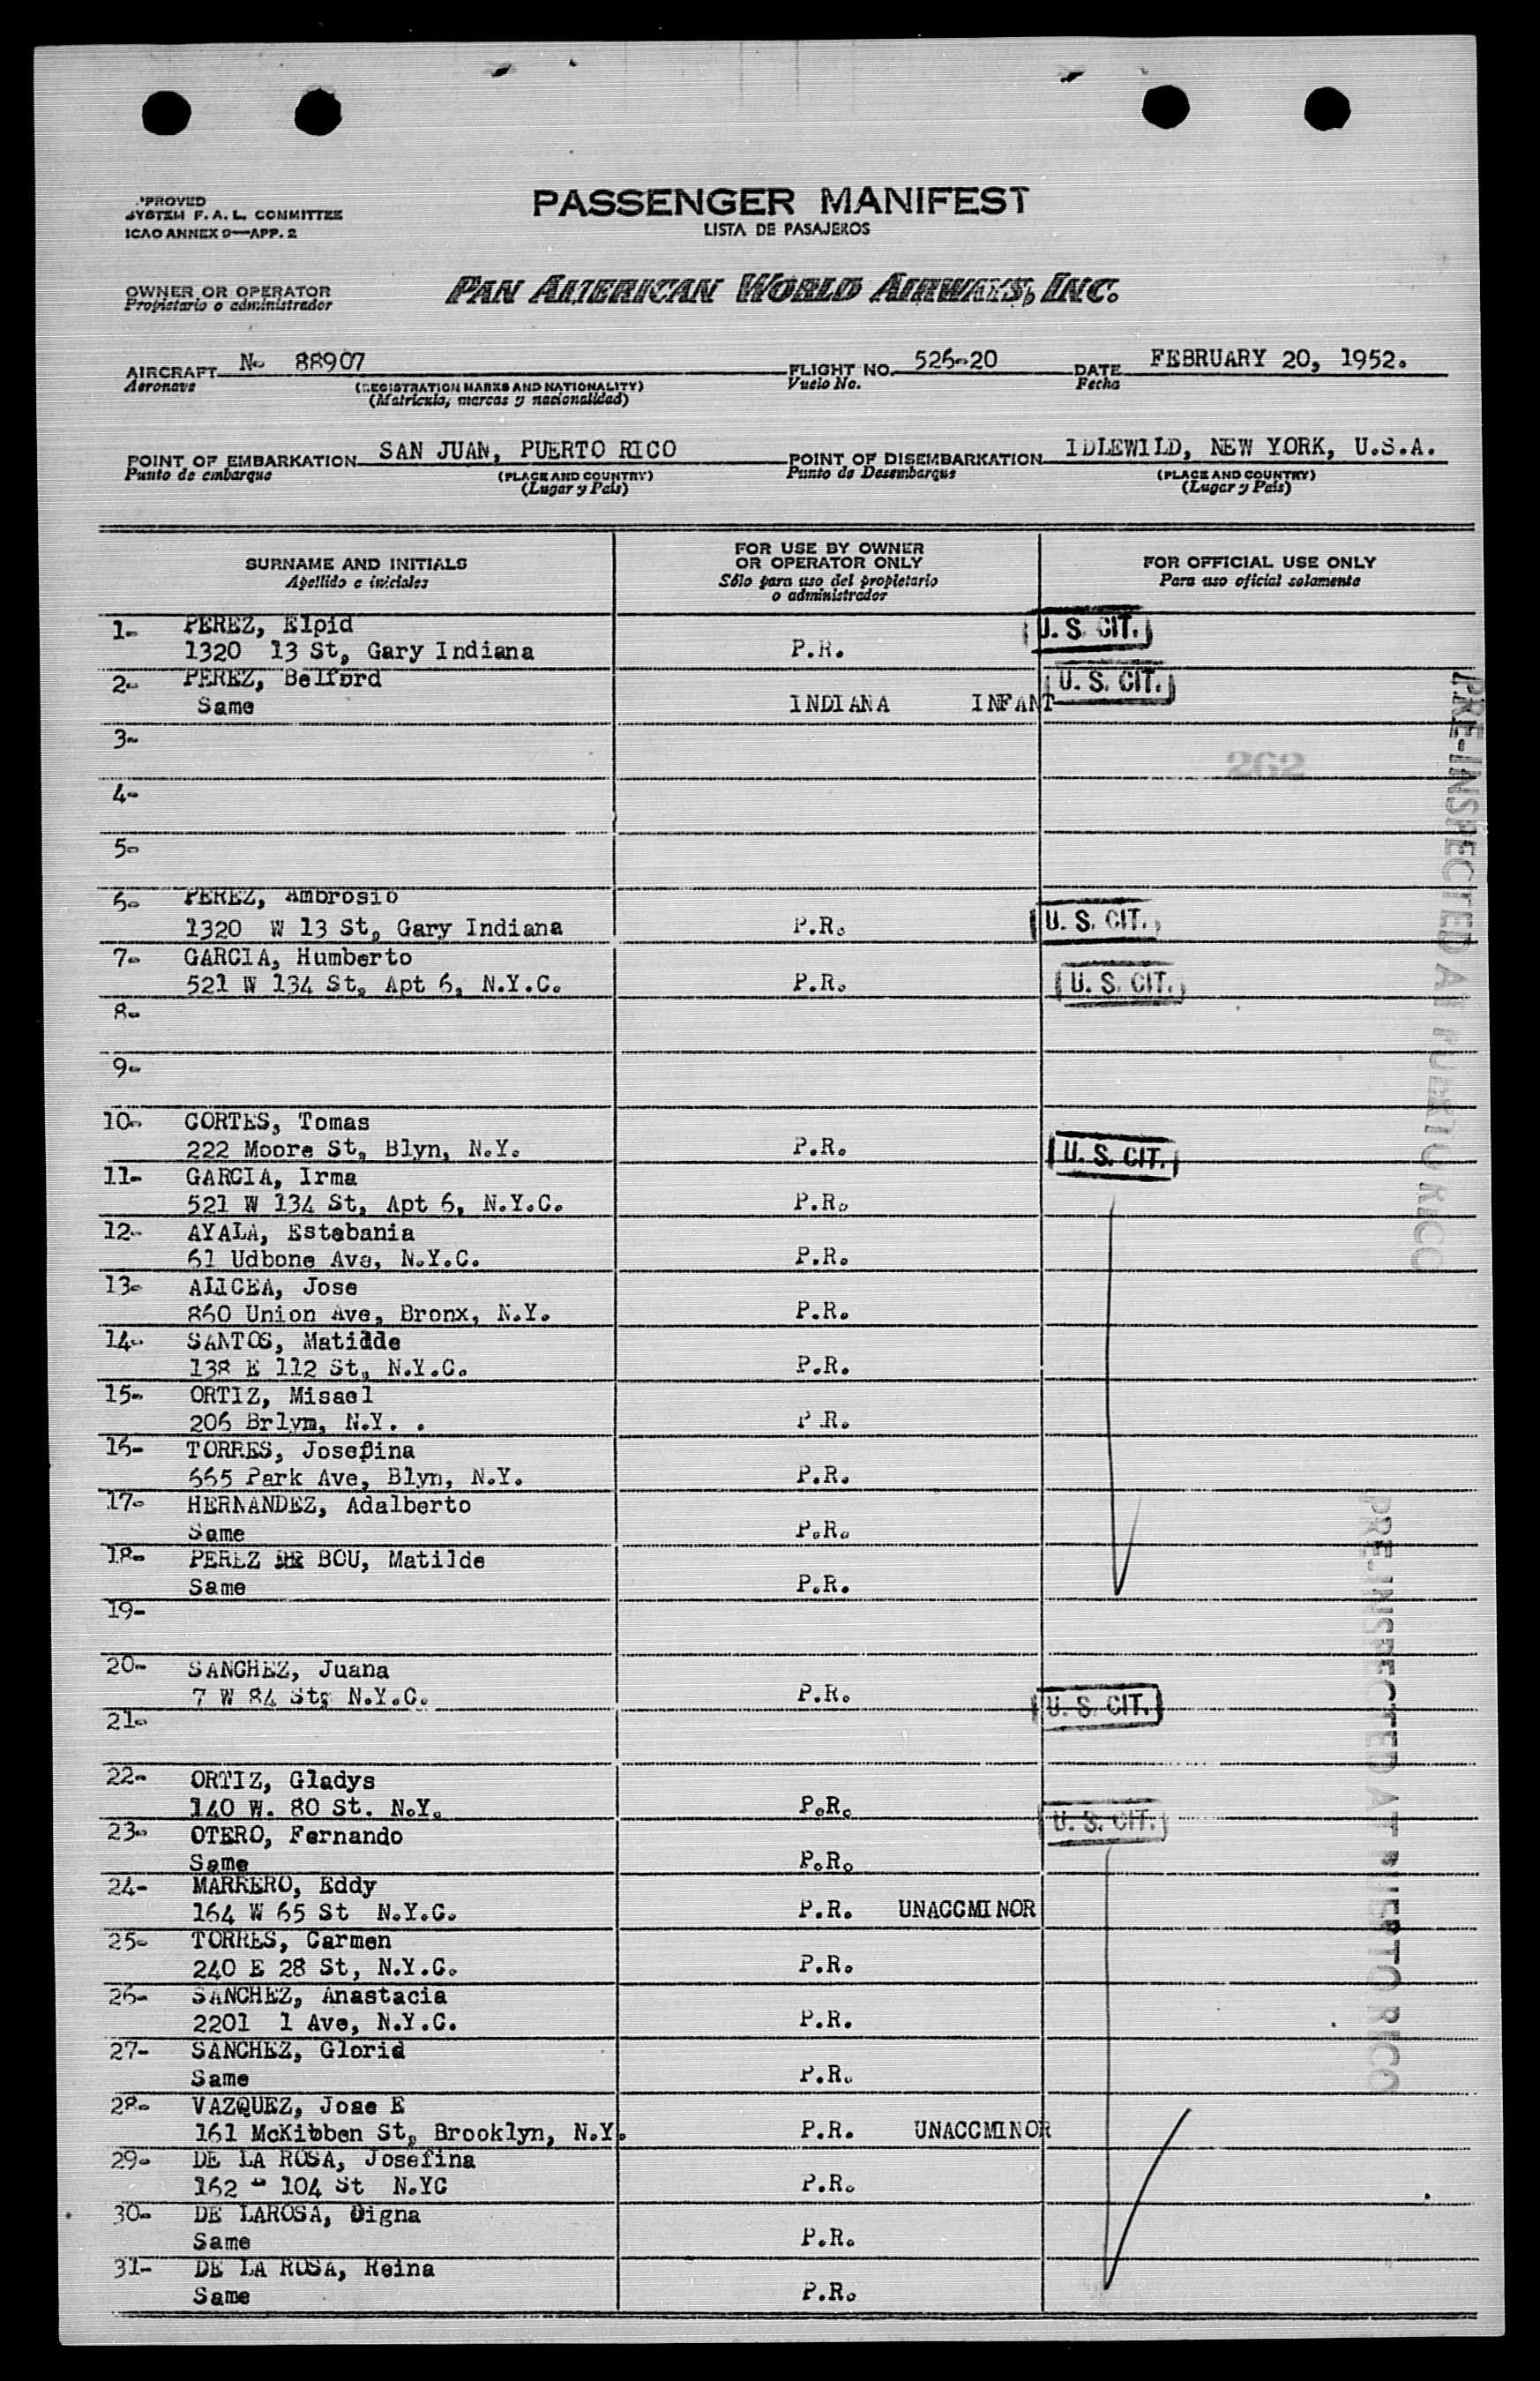 APPROVED
SYSTEM F. A. L. COMMITTEE
ICAO ANNEX 9—APP. 2
PASSENGER MANIFEST
LISTA DE PASAJEROS
OWNER OR OPERATOR
Propietario o administrador
PAN AMERICAN WORLD AIRWAYS, INC.
AIRCRAFT No 88907
Aeronave
(REGISTRATION MARKS AND NATIONALITY)
(Matricula, marcas y nacionalidad)
FLIGHT NO. 526-20
Vuelo No.
DATE FEBRUARY 20, 1952.
Fecha
POINT OF EMBARKATION SAN JUAN, PUERTO RICO
Punto de embarque
(PLACE AND COUNTRY)
(Lugar y País)
POINT OF DISEMBARKATION IDLEWILD, NEW YORK, U.S.A.
Punto de Desembarque
(PLACE AND COUNTRY)
(Lugar y País)
SURNAME AND INITIALS
Apellido e iniciales
FOR USE BY OWNER
OR OPERATOR ONLY
Sólo para uso del propietario
o administrador
FOR OFFICIAL USE ONLY
Para uso oficial solamente
1- PEREZ, Elpid
1320 13 St, Gary Indiana P.R. U. S. CIT.
2- PEREZ, Belford
Same INDIANA INFANT U. S. CIT.
3-
262
4-
5-
6- PEREZ, Ambrosio
1320 W 13 St, Gary Indiana P.R. U. S. CIT.
7- GARCIA, Humberto
521 W 134 St, Apt 6, N.Y.C. P.R. U. S. CIT.
8-
9-
10- CORTES, Tomas
222 Moore St, Blyn, N.Y. P.R. U. S. CIT.
11- GARCIA, Irma
521 W 134 St, Apt 6, N.Y.C. P.R.
12- AYALA, Estebania
61 Udbone Ave, N.Y.C. P.R.
13- ALICEA, Jose
860 Union Ave, Bronx, N.Y. P.R.
14- SANTOS, Matidde
138 E 112 St, N.Y.C. P.R.
15- ORTIZ, Misael
206 Brlym, N.Y. . P.R.
16- TORRES, Josefina
665 Park Ave, Blyn, N.Y. P.R.
17- HERNANDEZ, Adalberto
Same P.R.
18- PEREZ BOU, Matilde
Same P.R.
19-
20- SANCHEZ, Juana
7 W 84 St, N.Y.C. P.R. U. S. CIT.
21-
22- ORTIZ, Gladys
140 W. 80 St. N.Y. P.R. U. S. CIT.
23- OTERO, Fernando
Same P.R.
24- MARRERO, Eddy
164 W 65 St N.Y.C. P.R. UNACCMINOR
25- TORRES, Carmen
240 E 28 St, N.Y.C. P.R.
26- SANCHEZ, Anastacia
2201 1 Ave, N.Y.C. P.R.
27- SANCHEZ, Gloria
Same P.R.
28- VAZQUEZ, Jose E
161 McKibben St, Brooklyn, N.Y. P.R. UNACCMINOR
29- DE LA ROSA, Josefina
162 - 104 St N.YC P.R.
30- DE LAROSA, Digna
Same P.R.
31- DE LA ROSA, Reina
Same P.R.
PRE-INSPECTED AT PUERTO RICO
PRE-INSPECTED AT PUERTO RICO